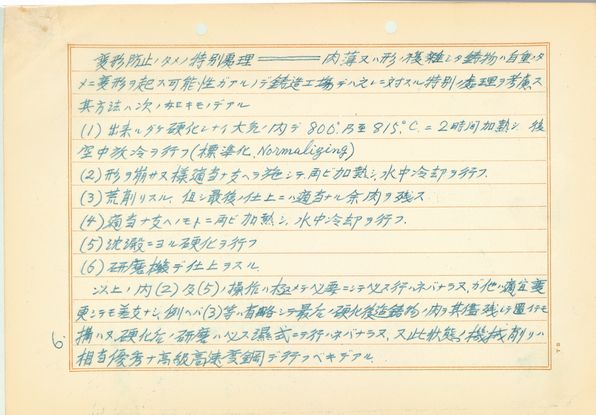 変形防止ノタメノ特別処理 ═══ 肉薄又ハ形ノ複雑シタ鋳物ハ自重ノタ
メニ変形ヲ起ス可能性ガアルノデ鋳造工場デハ之ニ対スル特別ノ処理ヲ考慮ス
其方法ハ次ノ如キモノデアル
(1) 出来ルダケ硬化シナイ大気ノ内デ 800°乃至815°C.ニ2時間加熱シ 後
空中放冷ヲ行フ(標準化、Normalizing)
(2) 形ヲ崩サヌ様適当ナ支ヘヲ施シテ再ビ加熱シ、水中冷却ヲ行フ.
(3) 荒削リスル. 但シ最後ノ仕上ニハ適当ナル余肉ヲ残ス
(4) 適当ナ支ヘノモトニ再ビ加熱シ、水中冷却ヲ行フ.
(5) 沈澱ニヨル硬化ヲ行フ
(6) 研磨機デ仕上ヲスル.
以上ノ内(2)及(5)ノ操作ハ極メテ必要ニシテ必ズ行ハネバナラヌ.ガ他ハ適宜変
更シテモ差支ナシ、例ヘバ(3)等ハ省略シテ最后ノ硬化後迄鋳物ノ肉ヲ其儘残シテ置イテモ
構ハヌ.硬化后ノ研磨ハ必ズ湿式ニテ行ハネバナラヌ.又此状態ノ機械削リハ
相当優秀ナ高級高速度鋼デ行フベキデアル.
6.